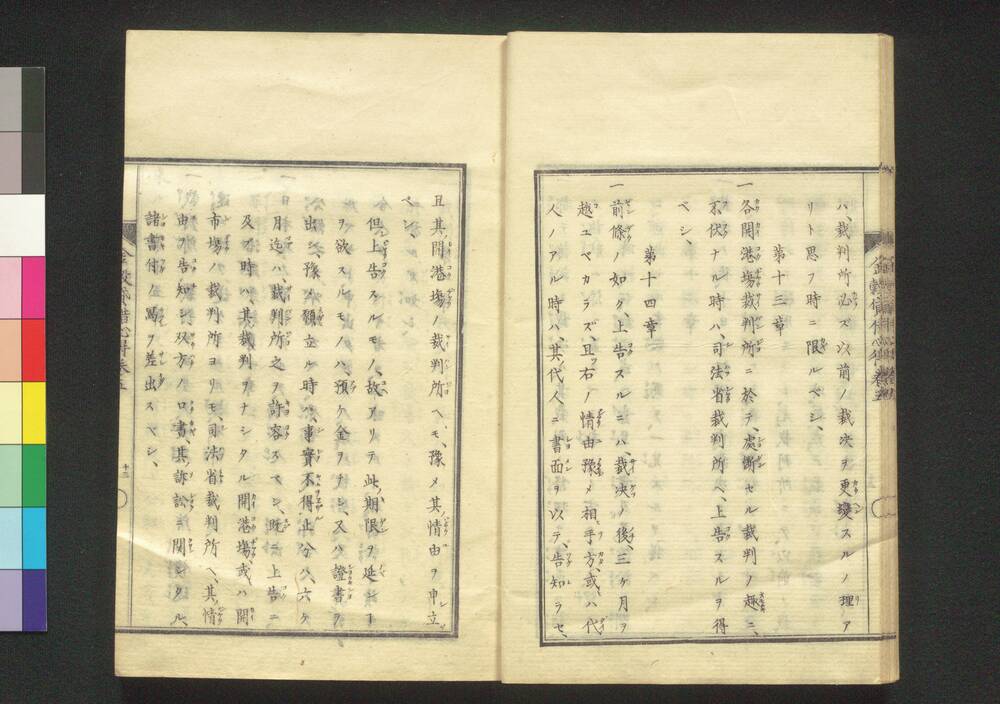 ハ、裁判所必ズ以前ノ裁決ヲ更變スルノ理ア
リト思フ時ニ限ルベシ、
第十三章
一 各開港塲裁判所ニ於テ、處斷セル裁判ノ趣ニ、
不伏ナル時ハ、司法省裁判所ヘ、上告スルヲ得
ベシ、
第十四章
一 前條ノ如ク、上告スルニハ、裁決ノ後、三ケ月ヲ
越ユベカラズ、且右ノ情由豫メ相手方、或ハ代
人ノアル時ハ、其代人ニ書面ヲ以テ、告知ラセ、
且其開港塲ノ裁判所ヘモ、豫メ其情由ヲ申立
ベシ、
但上告スルモノ、故アリテ此期限ヲ延シ
ヲ欲スルモノハ、預ケ金ヲナシ、又ハ證書ヲ
出シ、豫メ願立ル時ハ、事實不得止分ハ、六ケ
月迄ハ裁判所之ヲ許容スベシ、既ニ上告ニ
及フ時ハ、其裁判ヲナシタル開港塲、或ハ開
市塲ノ裁判所ヨリモ、司法省裁判所ヘ、其情
由ヲ告知シ、双方ノ口書、其訴訟ニ関シタル、
諸書付ノ寫ヲ差出スベシ、
十三